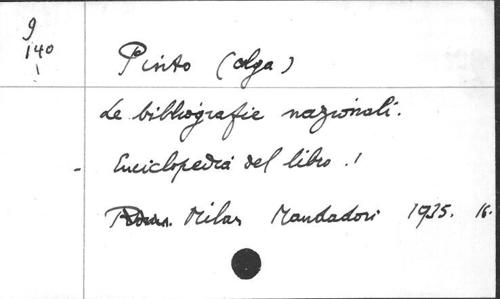 9
140
Pinto (Olga)
Le bibliografie nazionali.
- Enciclopedia del libro. 1
Milan Mondadori 1935. 16.